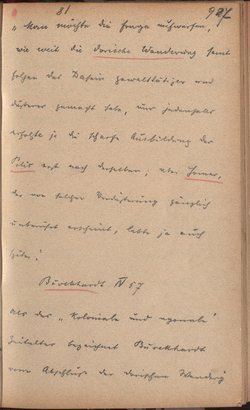 81 927
„Man möchte die Frage aufwerfen,
wie weit die dorische Wanderung samt
Folgen das Dasein gewalttätiger und
düsterer gemacht habe, nur jedenfalls
erfolgte ja die scharfe Ausbildung der
Polis erst nach derselben; aber Homer,
der von solcher Verdüsterung gänzlich
unberührt erscheint, lebte ja auch
später.“
Burckhardt IV 57
Als das „koloniale und agonale“
Zeitalter bezeichnet Burckhardt
vom Abschluss der dorischen Wanderg